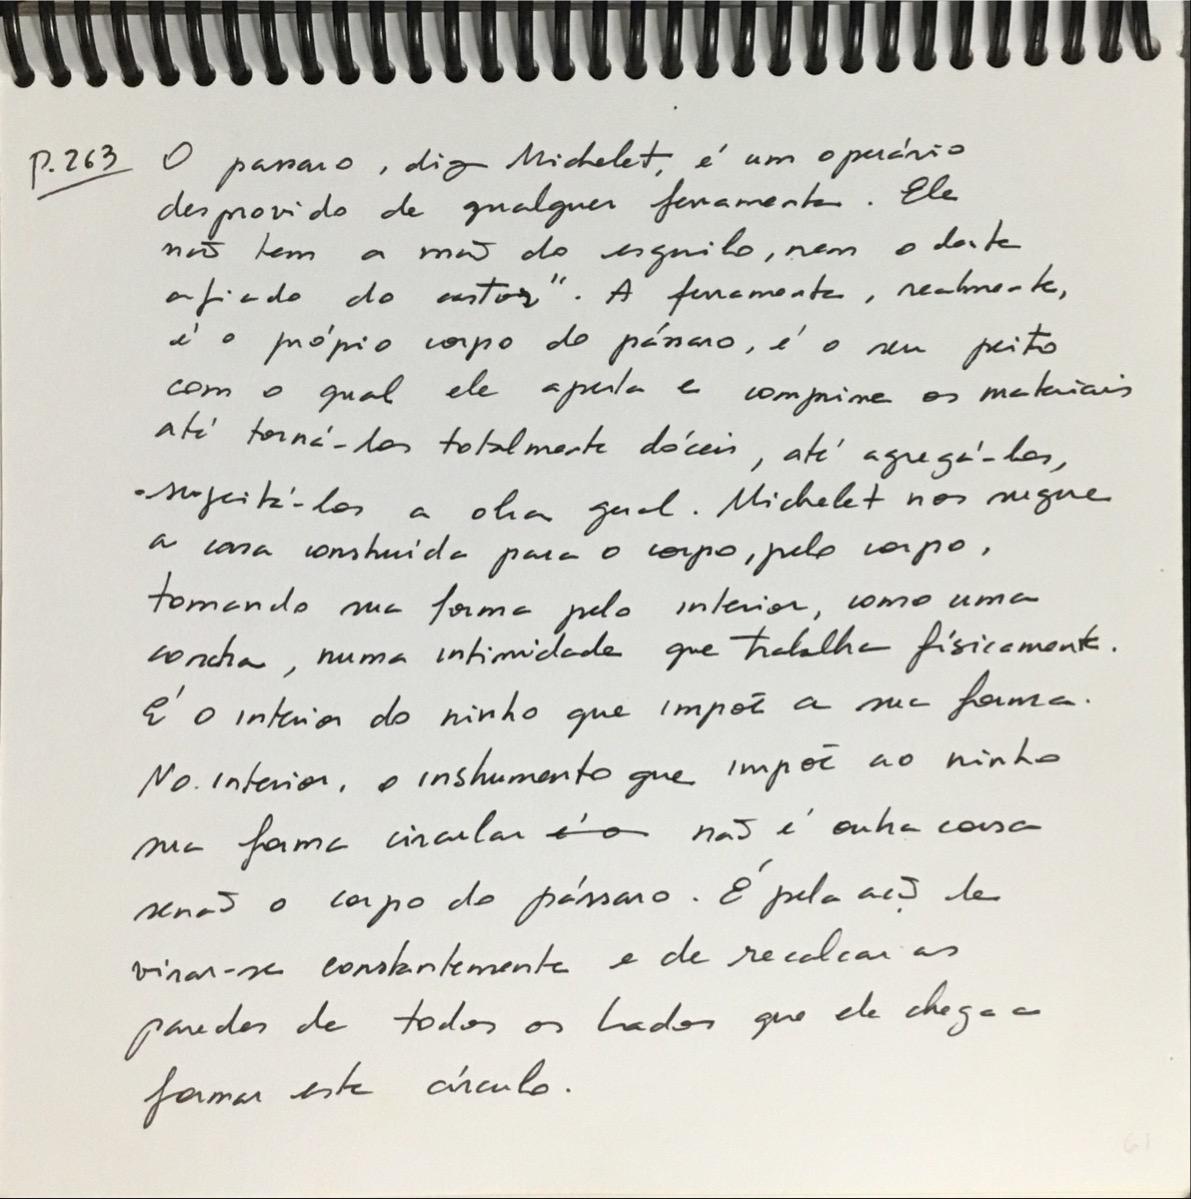 P.263 O passaro, diz Michelet, é um operário
desprovido de qualquer ferramenta. Ele
não tem a mão do esquilo, nem o dente
afiado do castor". A ferramenta, realmente,
é o próprio corpo do pássaro, é o seu peito
com o qual ele aperta e comprime os materiais
até torná-los totalmente dóceis, até agregá-los,
sujeitá-los a obra geral. Michelet nos sugere
a casa construída para o corpo, pelo corpo,
tomando sua forma pelo interior, como uma
concha, numa intimidade que trabalha físicamente.
É o interior do ninho que impõe a sua forma.
No interior, o instrumento que impõe ao ninho
sua forma circular é o não é outra coisa
senão o corpo do pássaro. É pela ação de
virar-se constantemente e de recalcar as
paredes de todos os lados que ele chega a
formar este círculo.
61